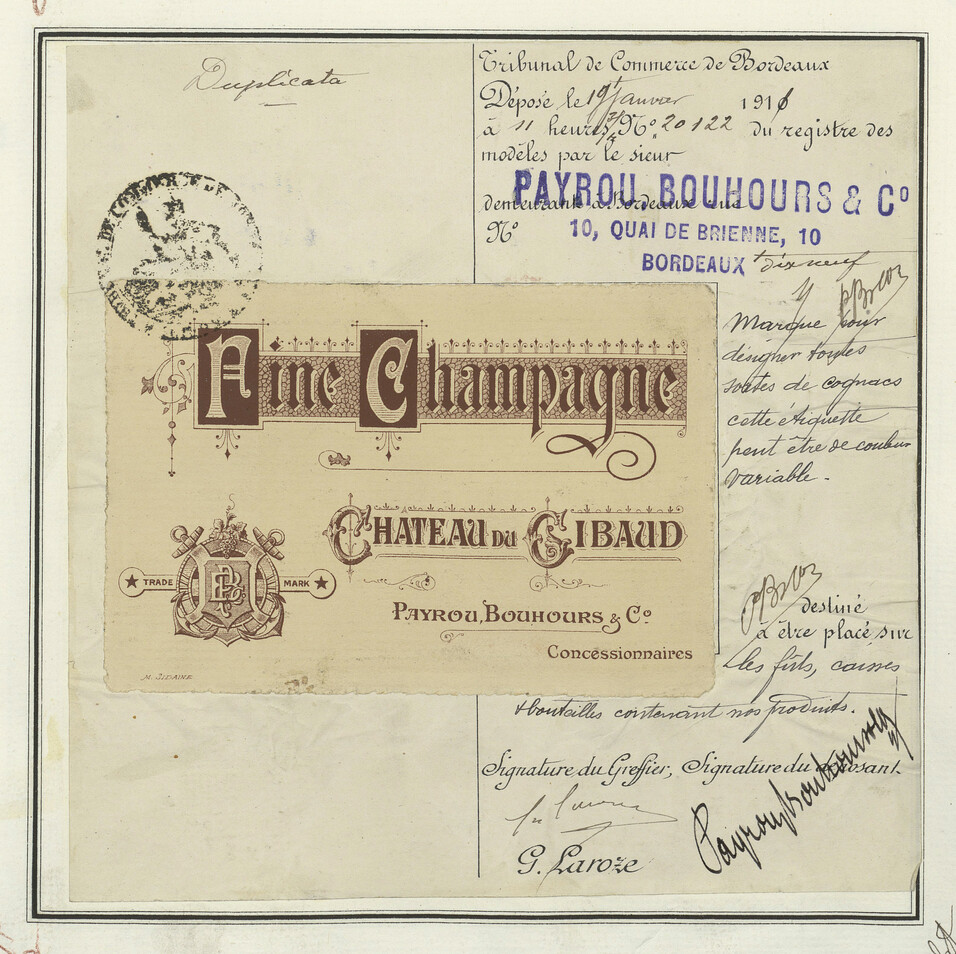 Duplicata
Tribunal de Commerce de Bordeaux
Déposé le 19 Janvier 1916
à 11 heures ½ No. 20122 du registre des
modèles par le sieur
PAYROU, BOUHOURS & Co
demeurant à Bordeaux rue
No
10, QUAI DE BRIENNE, 10
BORDEAUX
dix neuf
Marque pour
désigner toutes
sortes de cognacs
cette étiquette
peut être de couleur
variable.
Fine Champagne
CHATEAU DU GIBAUD
TRADE MARK
PAYROU, BOUHOURS & Co
Concessionnaires
destiné
à être placé sur
les fûts, caisses
& bouteilles contenant nos produits.
Signature du Greffier, Signature du Déposant.
G. Laroze
Payrou Bouhours